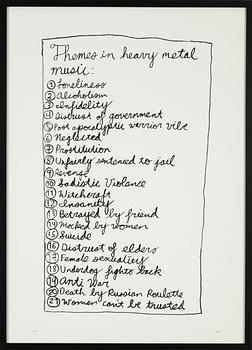 Themes in heavy metal
music:
① Loneliness
② Alcoholism
③ Infidelity
④ Distrust of government
⑤ Post apocalyptic warrior vibe
⑥ Neglected
⑦ Prostitution
⑧ Unfairly sentened to jail
⑨ Revense
⑩ Sadistic Violence
⑪ Witchcraft
⑫ Insanity
⑬ Betrayed by friend
⑭ Mocked by women
⑮ Suicide
⑯ Distrust of elders
⑰ Female sexuality
⑱ Underdog fights back
⑲ Anti War
⑳ Death by Russian Roulette
㉑ Women can't be trusted